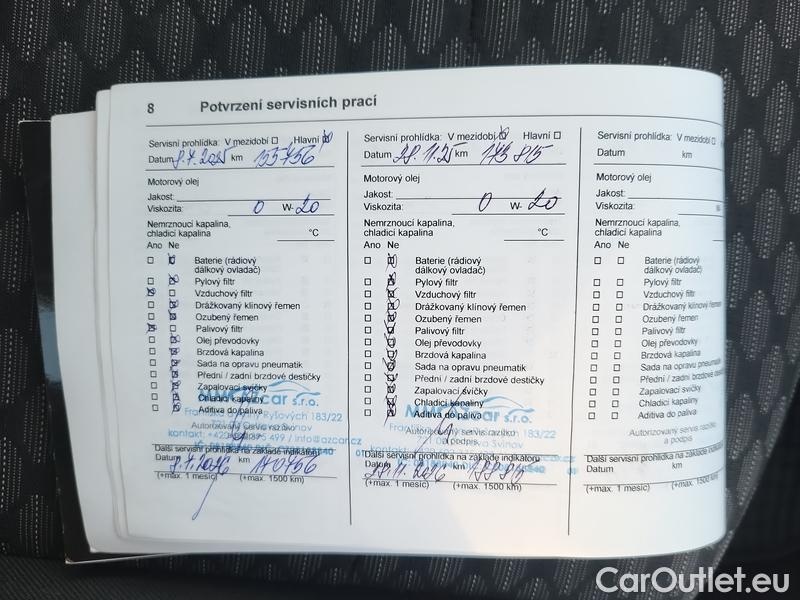 8 Potvrzení servisních prací
Servisní prohlídka: V mezidobí Hlavní
Datum 8.7.2025 km 155756
Motorový olej
Jakost:
Viskozita: 0 W- 20
Nemrznoucí kapalina,
chladicí kapalina °C
Ano Ne
Baterie (rádiový
dálkový ovladač)
Pylový filtr
Vzduchový filtr
Drážkovaný klínový řemen
Ozubený řemen
Palivový filtr
Olej převodovky
Brzdová kapalina
Sada na opravu pneumatik
Přední / zadní brzdové destičky
Zapalovací svíčky
Chladicí kapaliny
Aditiva do paliva
car s.r.o.
Ryšových 183/22
Svinov
Autorizovaný servis razítko
Další servisní prohlídka na základě indikátoru
Datum 8.7.2026 km 170756
(+max. 1 měsíc) (+max. 1500 km)
Servisní prohlídka: V mezidobí Hlavní
Datum 28.11.25 km 173815
Motorový olej
Jakost:
Viskozita: 0 W- 20
Nemrznoucí kapalina,
chladicí kapalina °C
Ano Ne
Baterie (rádiový
dálkový ovladač)
Pylový filtr
Vzduchový filtr
Drážkovaný klínový řemen
Ozubený řemen
Palivový filtr
Olej převodovky
Brzdová kapalina
Sada na opravu pneumatik
Přední / zadní brzdové destičky
Zapalovací svíčky
Chladicí kapaliny
Aditiva do paliva
car s.r.o.
183/22
Svinov
Autorizovaný servis razítko
a podpis
Další servisní prohlídka na základě indikátoru
Datum 28.11.2026 km
(+max. 1 měsíc) (+max. 1500 km)
Servisní prohlídka: V mezidobí
Datum km
Motorový olej
Jakost:
Viskozita:
Nemrznoucí kapalina,
chladicí kapalina
Ano Ne
Baterie (rádiový
dálkový ovladač)
Pylový filtr
Vzduchový filtr
Drážkovaný klínový řemen
Ozubený řemen
Palivový filtr
Olej převodovky
Brzdová kapalina
Sada na opravu pneumatik
Přední / zadní brzdové destičky
Zapalovací svíčky
Chladicí kapaliny
Aditiva do paliva
Autorizovaný servis razítko
a podpis
Další servisní prohlídka na základě
Datum km
(+max. 1 měsíc) (+max. 1500
CarOutlet.eu